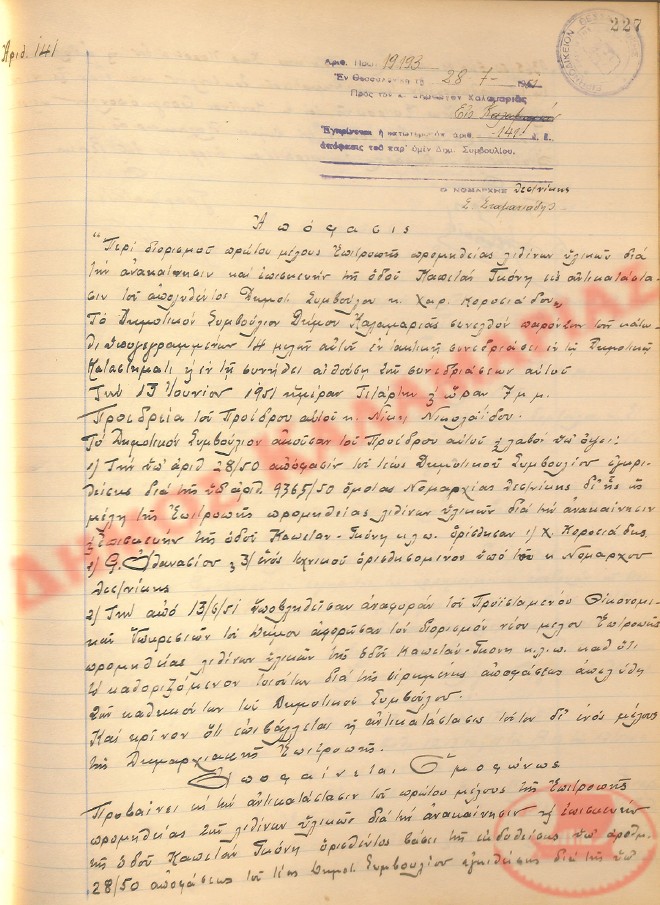 Ἀριθ. 141
227
Ἀριθ. Πρω. 19193
Ἐν Θεσσαλονίκῃ τῇ 28-7-1951
Πρὸς τὸν κ. Δήμαρχον Καλαμαριᾶς
Εἰς Καλαμαριάν
Ἐγκρίνεται ἡ κατωτέρω ὑπ' ἀριθ. 141 ἔ. ἔ.
ἀπόφασις τοῦ παρ' ὑμῖν Δημ. Συμβουλίου.
Ὁ ΝΟΜΑΡΧΗΣ Θεσ/νίκης
Ἀπόφασις
"Περὶ διορισμοῦ πρώτου μέλους Ἐπιτροπῆς προμηθείας λιθίνων ὑλικῶν διὰ
τὴν ἀνακαίνησιν καὶ ἐπισκευὴν τῆς ὁδοῦ Καπετὰν Γκόνη εἰς ἀντικατάστα-
σιν τοῦ ἀπολυθέντος Δημοτ. Συμβούλου κ. Χαρ. Κοροσιάδου"
Τὸ Δημοτικὸν Συμβούλιον Δήμου Καλαμαριᾶς συνελθὸν παρόντων τῶν κάτω-
θι ὑπογεγραμμένων 14 μελῶν αὐτοῦ ἐν τακτικῇ συνεδριάσει ἐν τῷ Δημοτικῷ
Καταστήματι ἢ ἐν τῇ συνήθει αἰθούσῃ τῶν συνεδριάσεων αὐτοῦ
Τὴν 13 Ἰουνίου 1951 ἡμέραν Τετάρτην ὥραν 7 μ.μ.
Προεδρεία τοῦ Προέδρου αὐτοῦ κ. Νίκ. Νικολαΐδου.
Τὸ Δημοτικὸν Συμβούλιον ἀκοῦσαν τοῦ Προέδρου αὐτοῦ & λαβὸν ὑπ' ὄψει:
1) Τὴν ὑπ' ἀριθ. 28/50 ἀπόφασιν τοῦ τέως Δημοτικοῦ Συμβουλίου ἐγκρι-
θείσης διὰ τῆς ὑπ' ἀριθ. 9365/50 ὁμοίας Νομαρχίας Θεσ/νίκης δι' ἧς ὡς
μέλη τῆς Ἐπιτροπῆς προμηθείας λιθίνων ὑλικῶν διὰ τὴν ἀνακαίνησιν
& ἐπισκευὴν τῆς ὁδοῦ Καπετὰν-Γκόνη κ.λ.π. ὁρίσθησαν 1) Χ. Κοροσιάδης
2) Ἀθανασίου & 3) ἑνὸς τεχνικοῦ ὁρισθησομένου ὑπὸ τοῦ κ. Νομάρχου
Θεσ/νίκης
2) Τὴν ἀπὸ 13/6/51 ὑποβληθεῖσαν ἀναφορὰν τοῦ Προϊσταμένου Οἰκονομι-
κῶν Ὑπηρεσιῶν τοῦ Δήμου ἀφορῶσαν τὸν διορισμὸν νέου μέλου Ἐπιτροπῆς
προμηθείας λιθίνων ὑλικῶν τῆς ὁδοῦ Καπετὰν-Γκόνη κ.λ.π. καθ' ὅτι
ὁ καθοριζόμενος τοιοῦτος διὰ τῆς εἰρημένης ἀποφάσεως ἀπελύθη
τῶν καθηκόντων τοῦ Δημοτικοῦ Συμβούλου.
Καὶ κρῖνον ὅτι ἐπιβάλλεται ἡ ἀντικατάστασις τούτου δι' ἑνὸς μέλους
τῆς Δημαρχιακῆς Ἐπιτροπῆς.
Ἀποφαίνεται Ὁμοφώνως
Προβαίνει εἰς τὴν ἀντικατάστασιν τοῦ πρώτου μέλους τῆς Ἐπιτροπῆς
προμηθείας τῶν λιθίνων ὑλικῶν διὰ τὴν ἀνακαίνησιν & ἐπισκευὴν
τῆς ὁδοῦ Καπετὰν Γκόνη ὁρισθέντος βάσει τῆς ἐκδοθείσης ὑπ' ἀριθμ.
28/50 ἀποφάσεως τοῦ τέως Δημοτ. Συμβουλίου ἐγκριθείσης διὰ τῆς ὑπ'